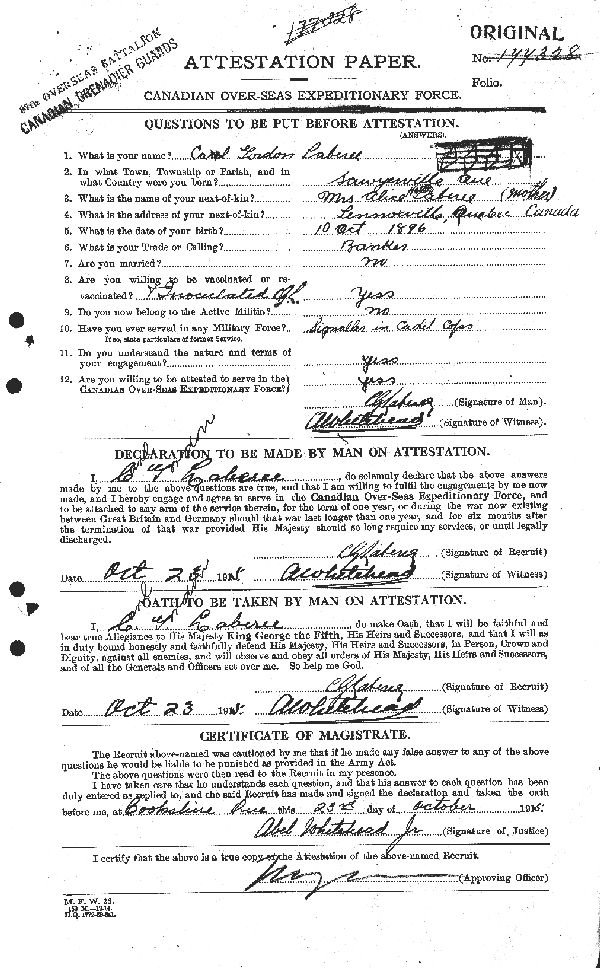 177328
ORIGINAL
No. 144328
Folio.
87TH OVERSEAS BATTALION
CANADIAN GRENADIER GUARDS
ATTESTATION PAPER.
CANADIAN OVER-SEAS EXPEDITIONARY FORCE.
QUESTIONS TO BE PUT BEFORE ATTESTATION.
(ANSWERS).
1. What is your name? Gordon Laberee
2. In what Town, Township or Parish, and in
what Country were you born? Sawyerville Que
3. What is the name of your next-of-kin? Mrs Laberee (Mother)
4. What is the address of your next-of-kin? Lennoxville, Quebec Canada
5. What is the date of your birth? 10 Oct 1896
6. What is your Trade or Calling? Banker
7. Are you married? no
8. Are you willing to be vaccinated or re-
vaccinated? & Inoculated Yess
9. Do you now belong to the Active Militia? no
10. Have you ever served in any Military Force? Signaller in Cadet Cops
If so, state particulars of former Service.
11. Do you understand the nature and terms of
your engagement? yess
12. Are you willing to be attested to serve in the
CANADIAN OVER-SEAS EXPEDITIONARY FORCE? yess
CGLaberee (Signature of Man).
AWhitehead (Signature of Witness).
DECLARATION TO BE MADE BY MAN ON ATTESTATION.
I, C G Laberee, do solemnly declare that the above answers
made by me to the above questions are true, and that I am willing to fulfil the engagements by me now
made, and I hereby engage and agree to serve in the Canadian Over-Seas Expeditionary Force, and
to be attached to any arm of the service therein, for the term of one year, or during the war now existing
between Great Britain and Germany should that war last longer than one year, and for six months after
the termination of that war provided His Majesty should so long require my services, or until legally
discharged.
CGLaberee (Signature of Recruit)
Date Oct 23 1915 AWhitehead (Signature of Witness)
OATH TO BE TAKEN BY MAN ON ATTESTATION.
I, C G Laberee, do make Oath, that I will be faithful and
bear true Allegiance to His Majesty King George the Fifth, His Heirs and Successors, and that I will as
in duty bound honestly and faithfully defend His Majesty, His Heirs and Successors, in Person, Crown and
Dignity, against all enemies, and will observe and obey all orders of His Majesty, His Heirs and Successors,
and of all the Generals and Officers set over me. So help me God.
CGLaberee (Signature of Recruit)
Date Oct 23 1915 AWhitehead (Signature of Witness)
CERTIFICATE OF MAGISTRATE.
The Recruit above-named was cautioned by me that if he made any false answer to any of the above
questions he would be liable to be punished as provided in the Army Act.
The above questions were then read to the Recruit in my presence.
I have taken care that he understands each question, and that his answer to each question has been
duly entered as replied to, and the said Recruit has made and signed the declaration and taken the oath
before me, at Cookshire Que this 23rd day of October 1915.
Abel Whitehead Jr (Signature of Justice)
I certify that the above is a true copy of the Attestation of the above-named Recruit.
(Approving Officer)
M. F. W. 23.
H.Q. 1772-39-841.